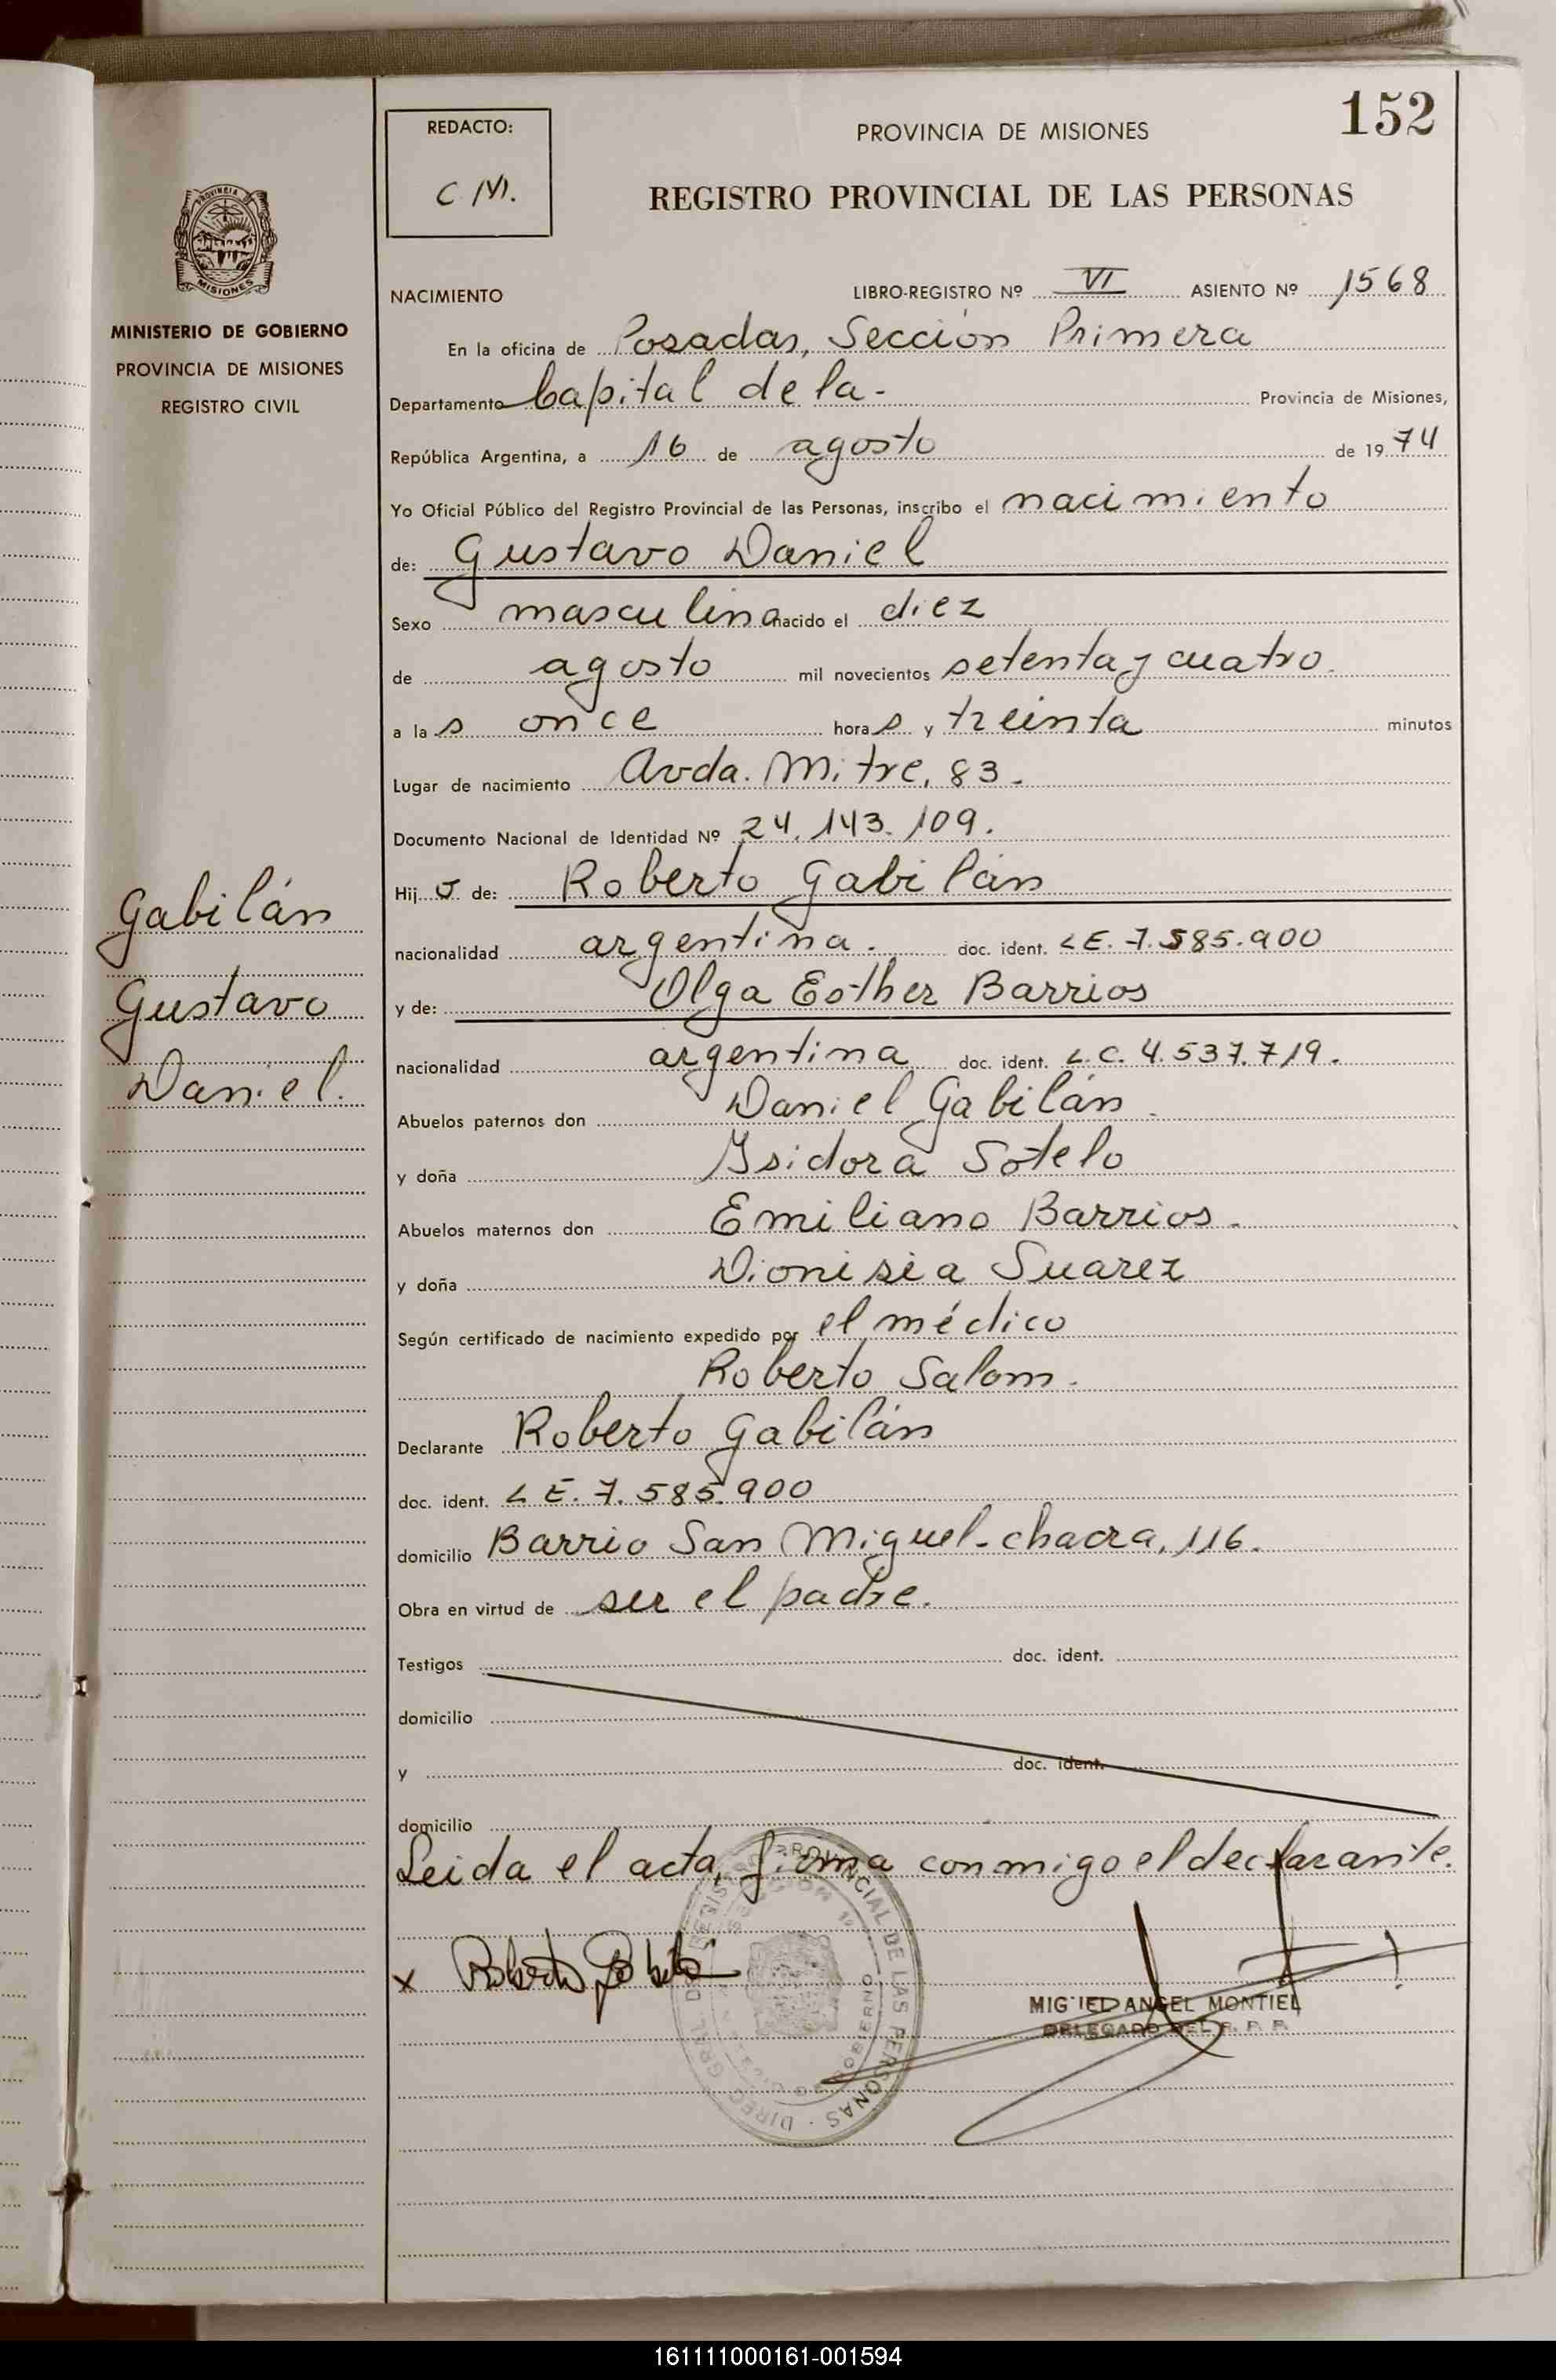 152
REDACTO:
C.M.
PROVINCIA DE MISIONES
REGISTRO PROVINCIAL DE LAS PERSONAS
PROVINCIA
MISIONES
MINISTERIO DE GOBIERNO
PROVINCIA DE MISIONES
REGISTRO CIVIL
NACIMIENTO LIBRO-REGISTRO Nº VI ASIENTO Nº 1568
En la oficina de Posadas, Sección Primera
Departamento Capital de la- Provincia de Misiones,
República Argentina, a 16 de agosto de 1974
Yo Oficial Público del Registro Provincial de las Personas, inscribo el nacimiento
de: Gustavo Daniel
Sexo masculino nacido el diez
de agosto mil novecientos setenta y cuatro.
a las once horas y treinta minutos
Lugar de nacimiento Avda. Mitre, 83.
Documento Nacional de Identidad Nº 24.143.109.
Hijo de: Roberto Gabilán
nacionalidad argentina. doc. ident. L.E. 7.585.900
y de: Olga Esther Barrios
nacionalidad argentina doc. ident. L.C. 4.537.719.
Abuelos paternos don Daniel Gabilán.
y doña Isidora Sotelo
Abuelos maternos don Emiliano Barrios.
y doña Dionisia Suarez
Según certificado de nacimiento expedido por el médico
Roberto Salom.
Declarante Roberto Gabilán
doc. ident. L.E. 7.585.900
domicilio Barrio San Miguel-chacra, 116.
Obra en virtud de ser el padre.
Testigos doc. ident.
domicilio
y doc. ident.
domicilio
Leida el acta, firma conmigo el declarante.
Gabilán
Gustavo
Daniel.
x Roberto Gabilán
MIGUEL ANGEL MONTIEL
DELEGADO DEL R. P. P.
PROVINCIAL DE LAS PERSONAS · DIREC. GRAL. DEL REGISTRO
GOBIERNO
161111000161-001594